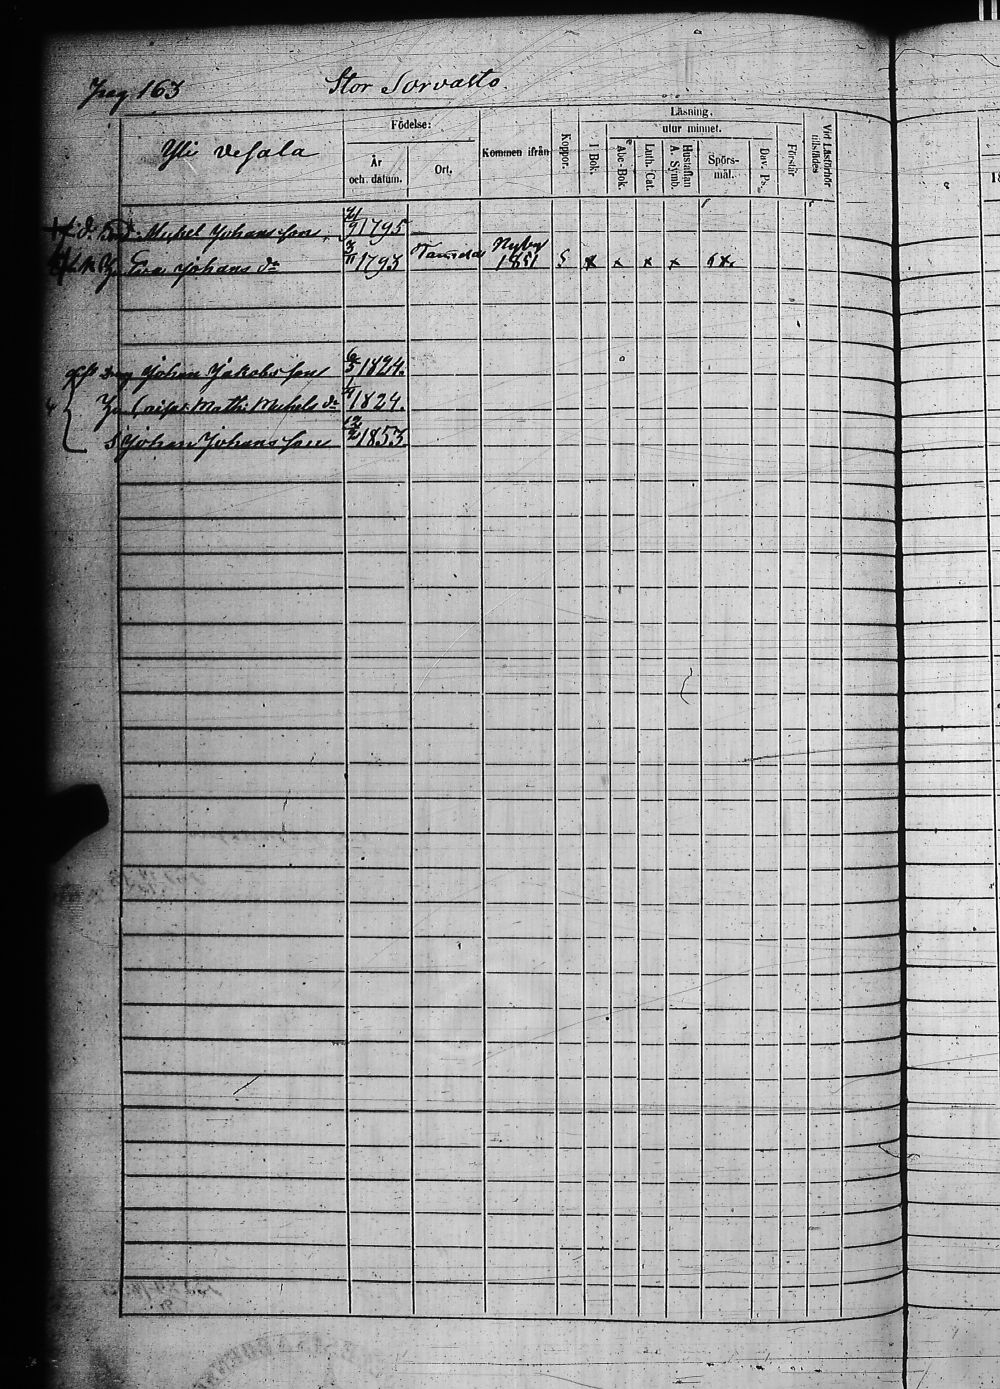 Pag 163 Stor Sorvasto.
Yli Vesala
Födelse:
År och. datum.
Ort.
Kommen ifrån
Koppor.
Läsning.
I Bok.
utur minnet.
Abc-Bok.
Luth. Cat.
Hustaflan A. Symb.
Spörsmål.
Dav. Ps.
Förstår
Vid Läsförhör tillstädes
Michel Johansson 1795
Eva Johans dr 3/11 1793 Nyby 1851 x x x x
Johan Jakobsson 6/5 1824.
Caisa Math: Michels dr 1824.
S Johan Johansson 12/2 1853